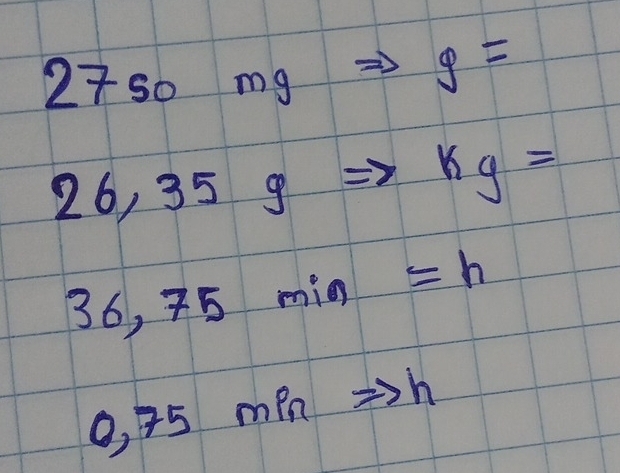 2750 mg ⇒ g =
26,35 g ⇒ Kg =
36,75 min = h
0,75 min ⇒ h